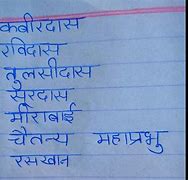 कबीरदास
रविदास
तुलसीदास
सूरदास
मीराबाई
चैतन्य महाप्रभु
रसखान